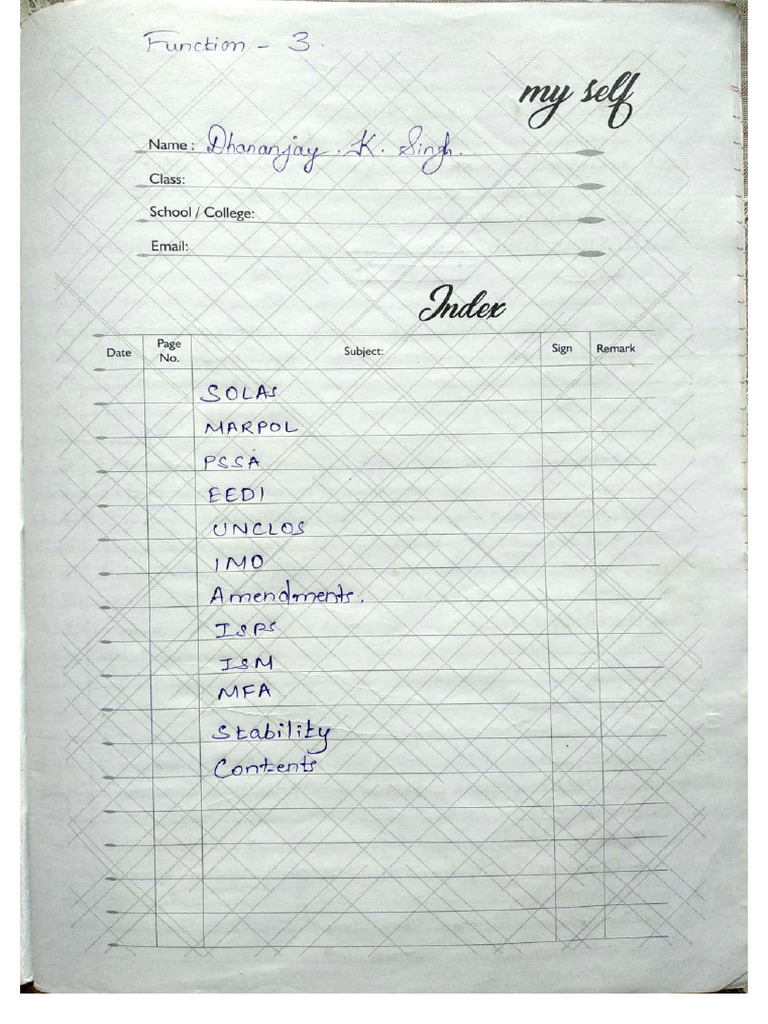 Function - 3.
my self
Name : Dhananjay . K . Singh.
Class:
School / College:
Email:
Index
Date Page No. Subject: Sign Remark
SOLAS
MARPOL
PSSA
EEDI
UNCLOS
IMO
Amendments.
ISPS
ISM
MFA
Stability
Contents